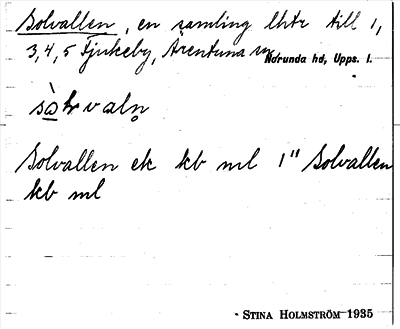 Solvallen, en samling lhtr till 1,
3, 4, 5 Fjukeby, Ärentuna sn
Norunda hd, Upps. l.
Solvallen ek kb ml 1" Solvallen
kb ml
STINA HOLMSTRÖM 1935